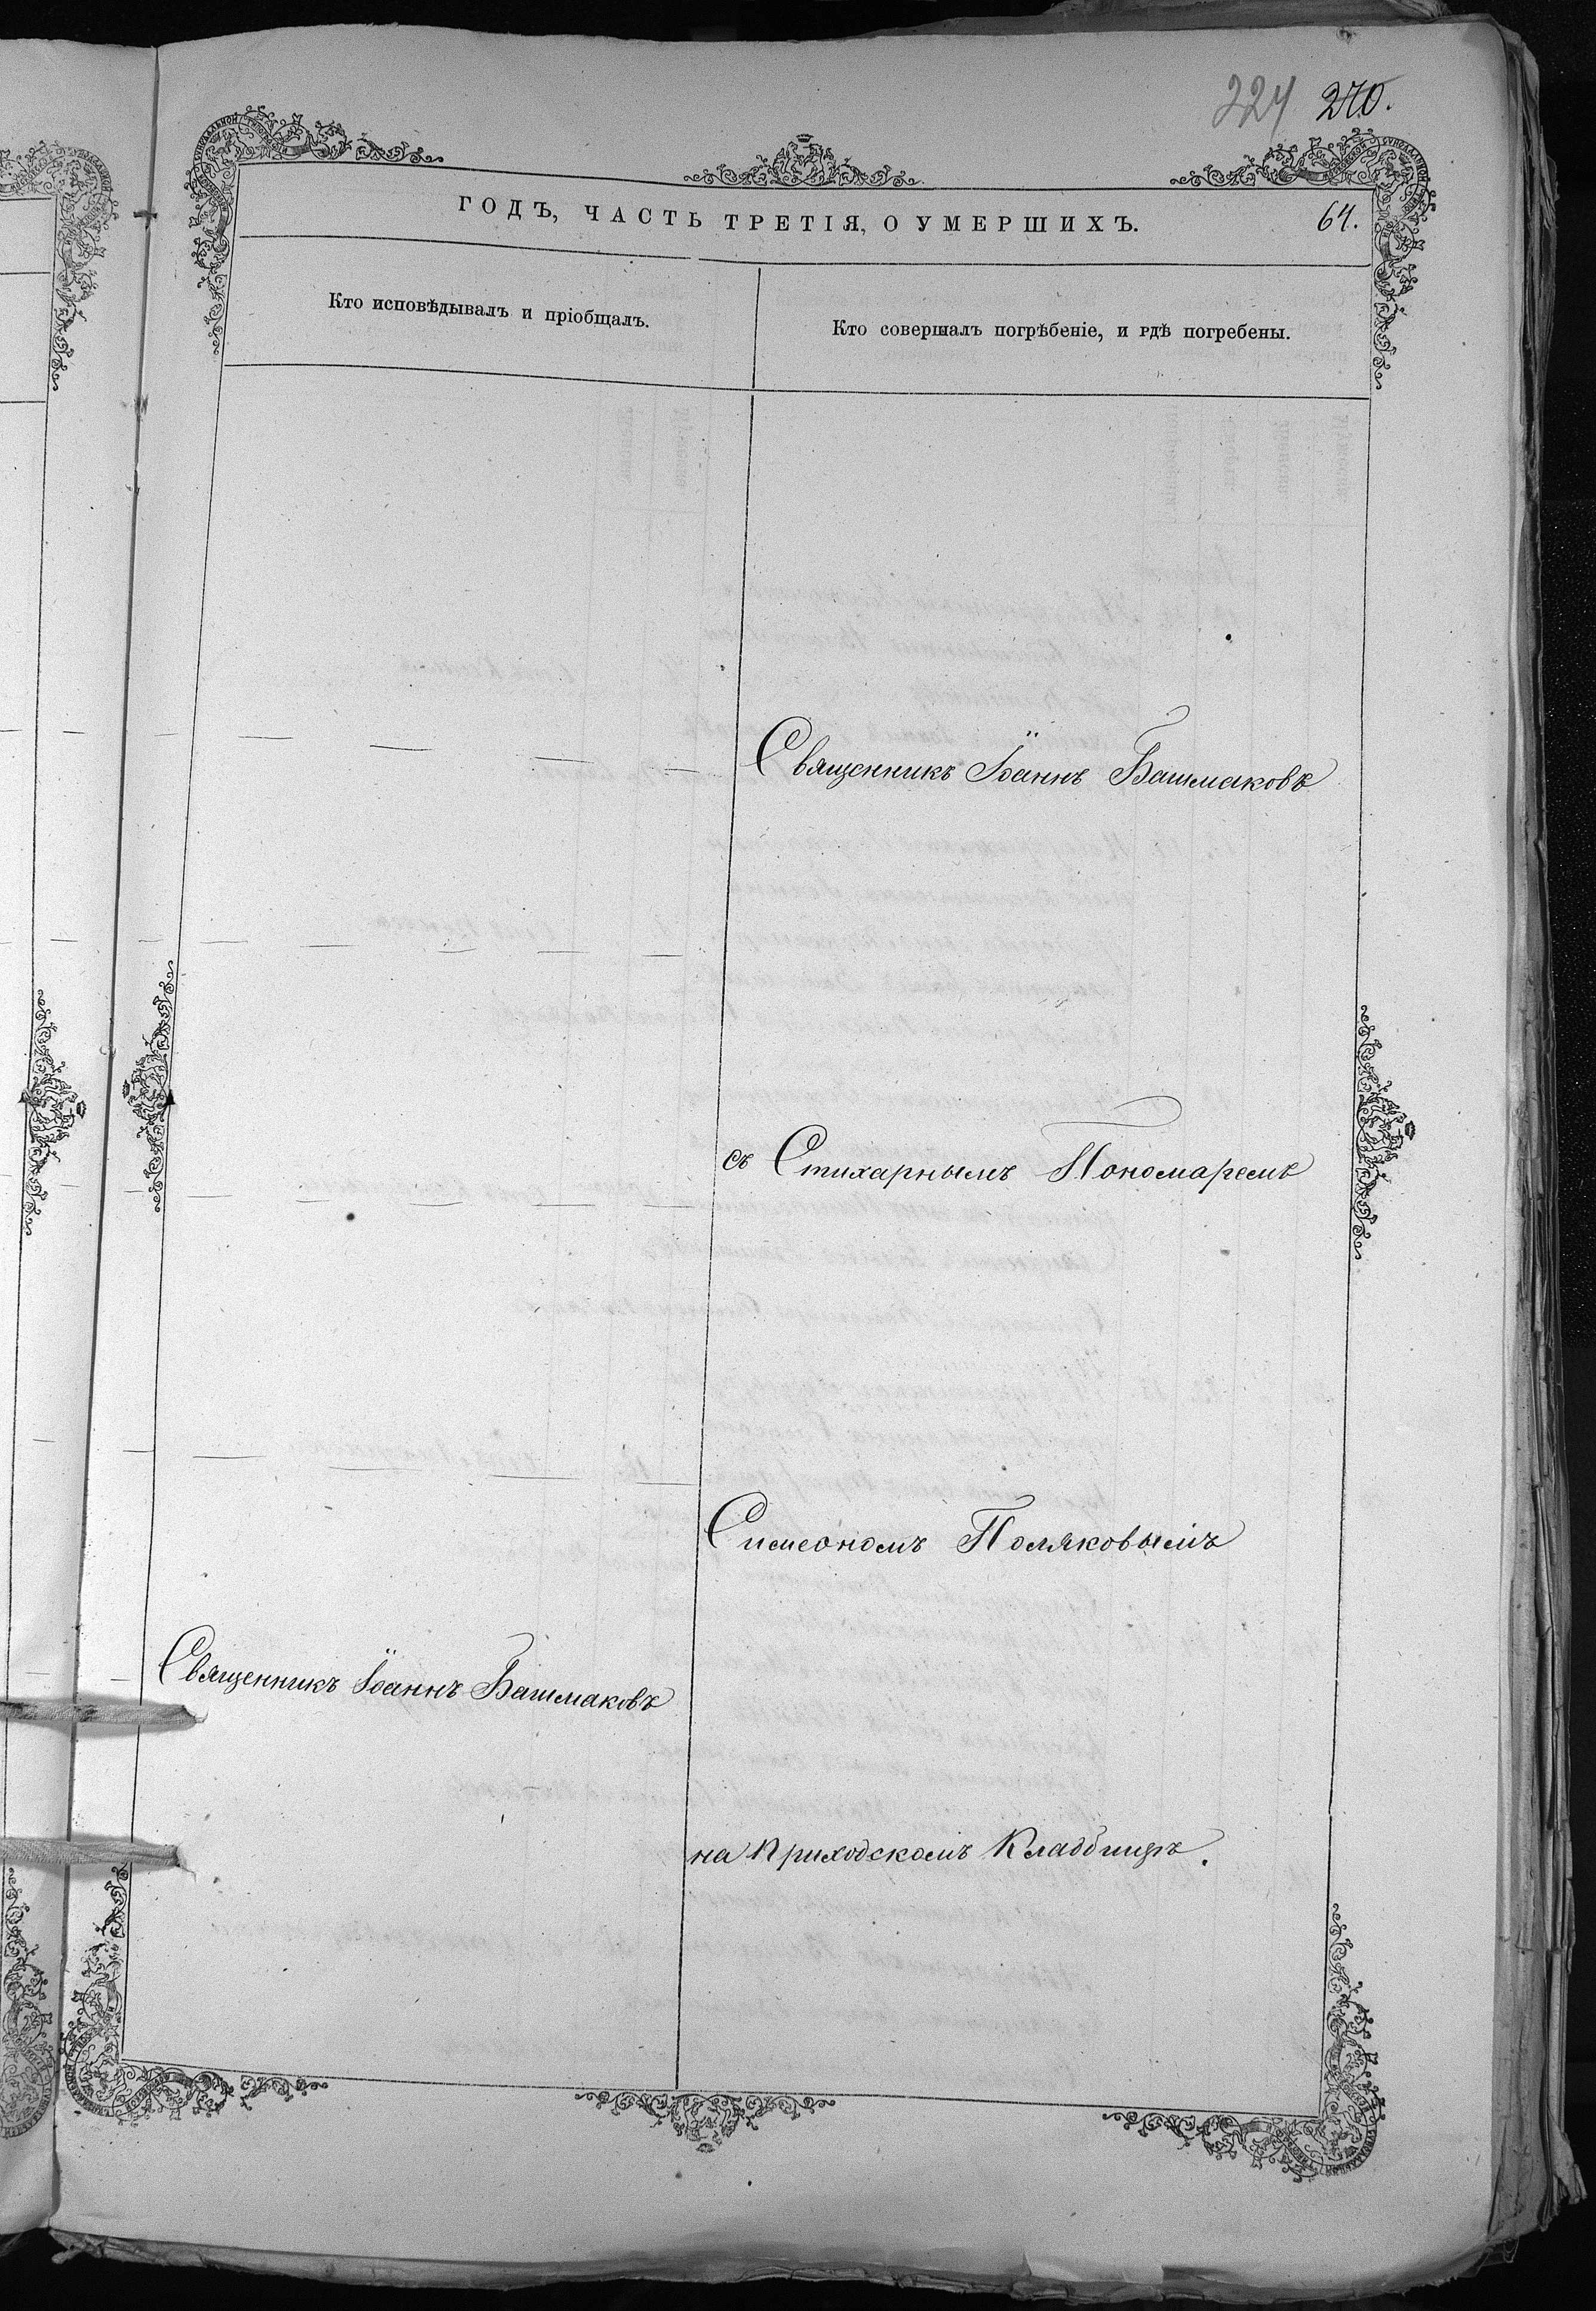 224 270.
ГОДЪ, ЧАСТЬ ТРЕТІЯ, О УМЕРШИХЪ. 64.
Кто исповѣдывалъ и пріобщалъ.
Кто совершалъ погрѣбеніе, и гдѣ погребены.
Священникъ Іоаннъ Башмаковъ
съ Стихарнымъ Пономаремъ
Симеономъ Поляковымъ
Священникъ Іоаннъ Башмаковъ
на Приходскомъ Кладбищѣ.